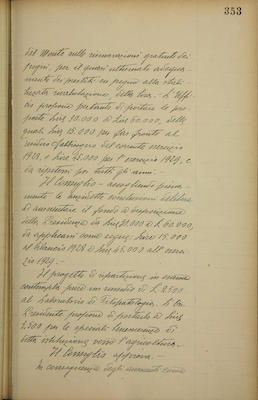 353
del Monte sulle rinnovazioni gratuite dei
pegni, per il quasi ultimato adegua-
mento dei prestiti su pegno alla
rivalutazione della lira. - L'Uffi-
cio propone pertanto di portare le pro-
poste Lire 30.000 a Lire 60.000, delle
quali Lire 15.000 per far fronte al
del corrente esercizio
1928, e Lire 45.000 per l'esercizio 1929, e
da ripetersi per tutti gli anni. -
Il Consiglio - accogliendo piena-
mente le anzidette conclusioni delibera
di aumentare il fondo a disposizione
della Presidenza da Lire 30.000 a L. 60.000,
da applicarsi come segue: Lire 15.000
al bilancio 1928 e Lire 45.000 all'eser-
cizio 1929. -
Il progetto di ripartizione in esame
contempla pure un sussidio di L. 2.500
al Laboratorio di Fitopatologia. Il On.
Presidente propone di portarlo a Lire
3.500 per le speciali benemerenze di
detta istituzione verso l'agricoltura. -
Il Consiglio approva. -
In conseguenza degli aumenti come